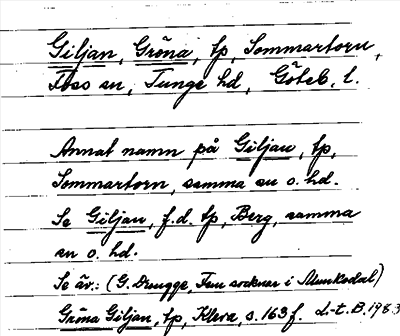 Giljan, Gröna, tp, Sommartorn,
Foss sn, Tunge hd, Göteb. l.
Annat namn på Giljan, tp,
Sommartorn, samma sn o. hd.
Se Giljan, f.d. tp, Berg, samma
sn o. hd.
Se äv.: (G. Drugge, Fem socknar i Munkedal)
Gröna Giljan, tp, Kleva, s. 163 f. L-t. B. 1983